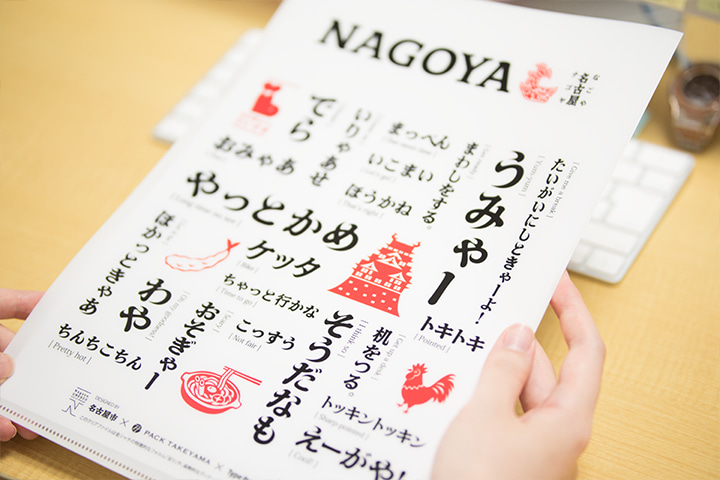 NAGOYA
なごや
名古屋
ナゴヤ
たいがいにしときゃーよ!
[ Give me a break ]
うみゃー
[ Yum-yum ]
まわしをする。
まっぺん
いこまい
ほうかね
[ That's right ]
いりゃあせ
でら
おみゃあ
やっとかめ
[ Long time no see ]
ケッタ
[ Bike ]
ちゃっと行かな
[ Time to go ]
ほかっときゃあ
わや
[ Oh my goodness ]
ちんちこちん
[ Pretty hot ]
おそぎゃー
[ Scary ]
こっすう
[ Not fair ]
そうだなも
[ I think so ]
机をつる。
[ Carry up a desk ]
トキトキ
[ Pointed ]
トッキントッキン
[ Sharp-pointed ]
えーがや!
[ Cool! ]
DESIGNED BY
名古屋市 × PACK TAKEYAMA ×